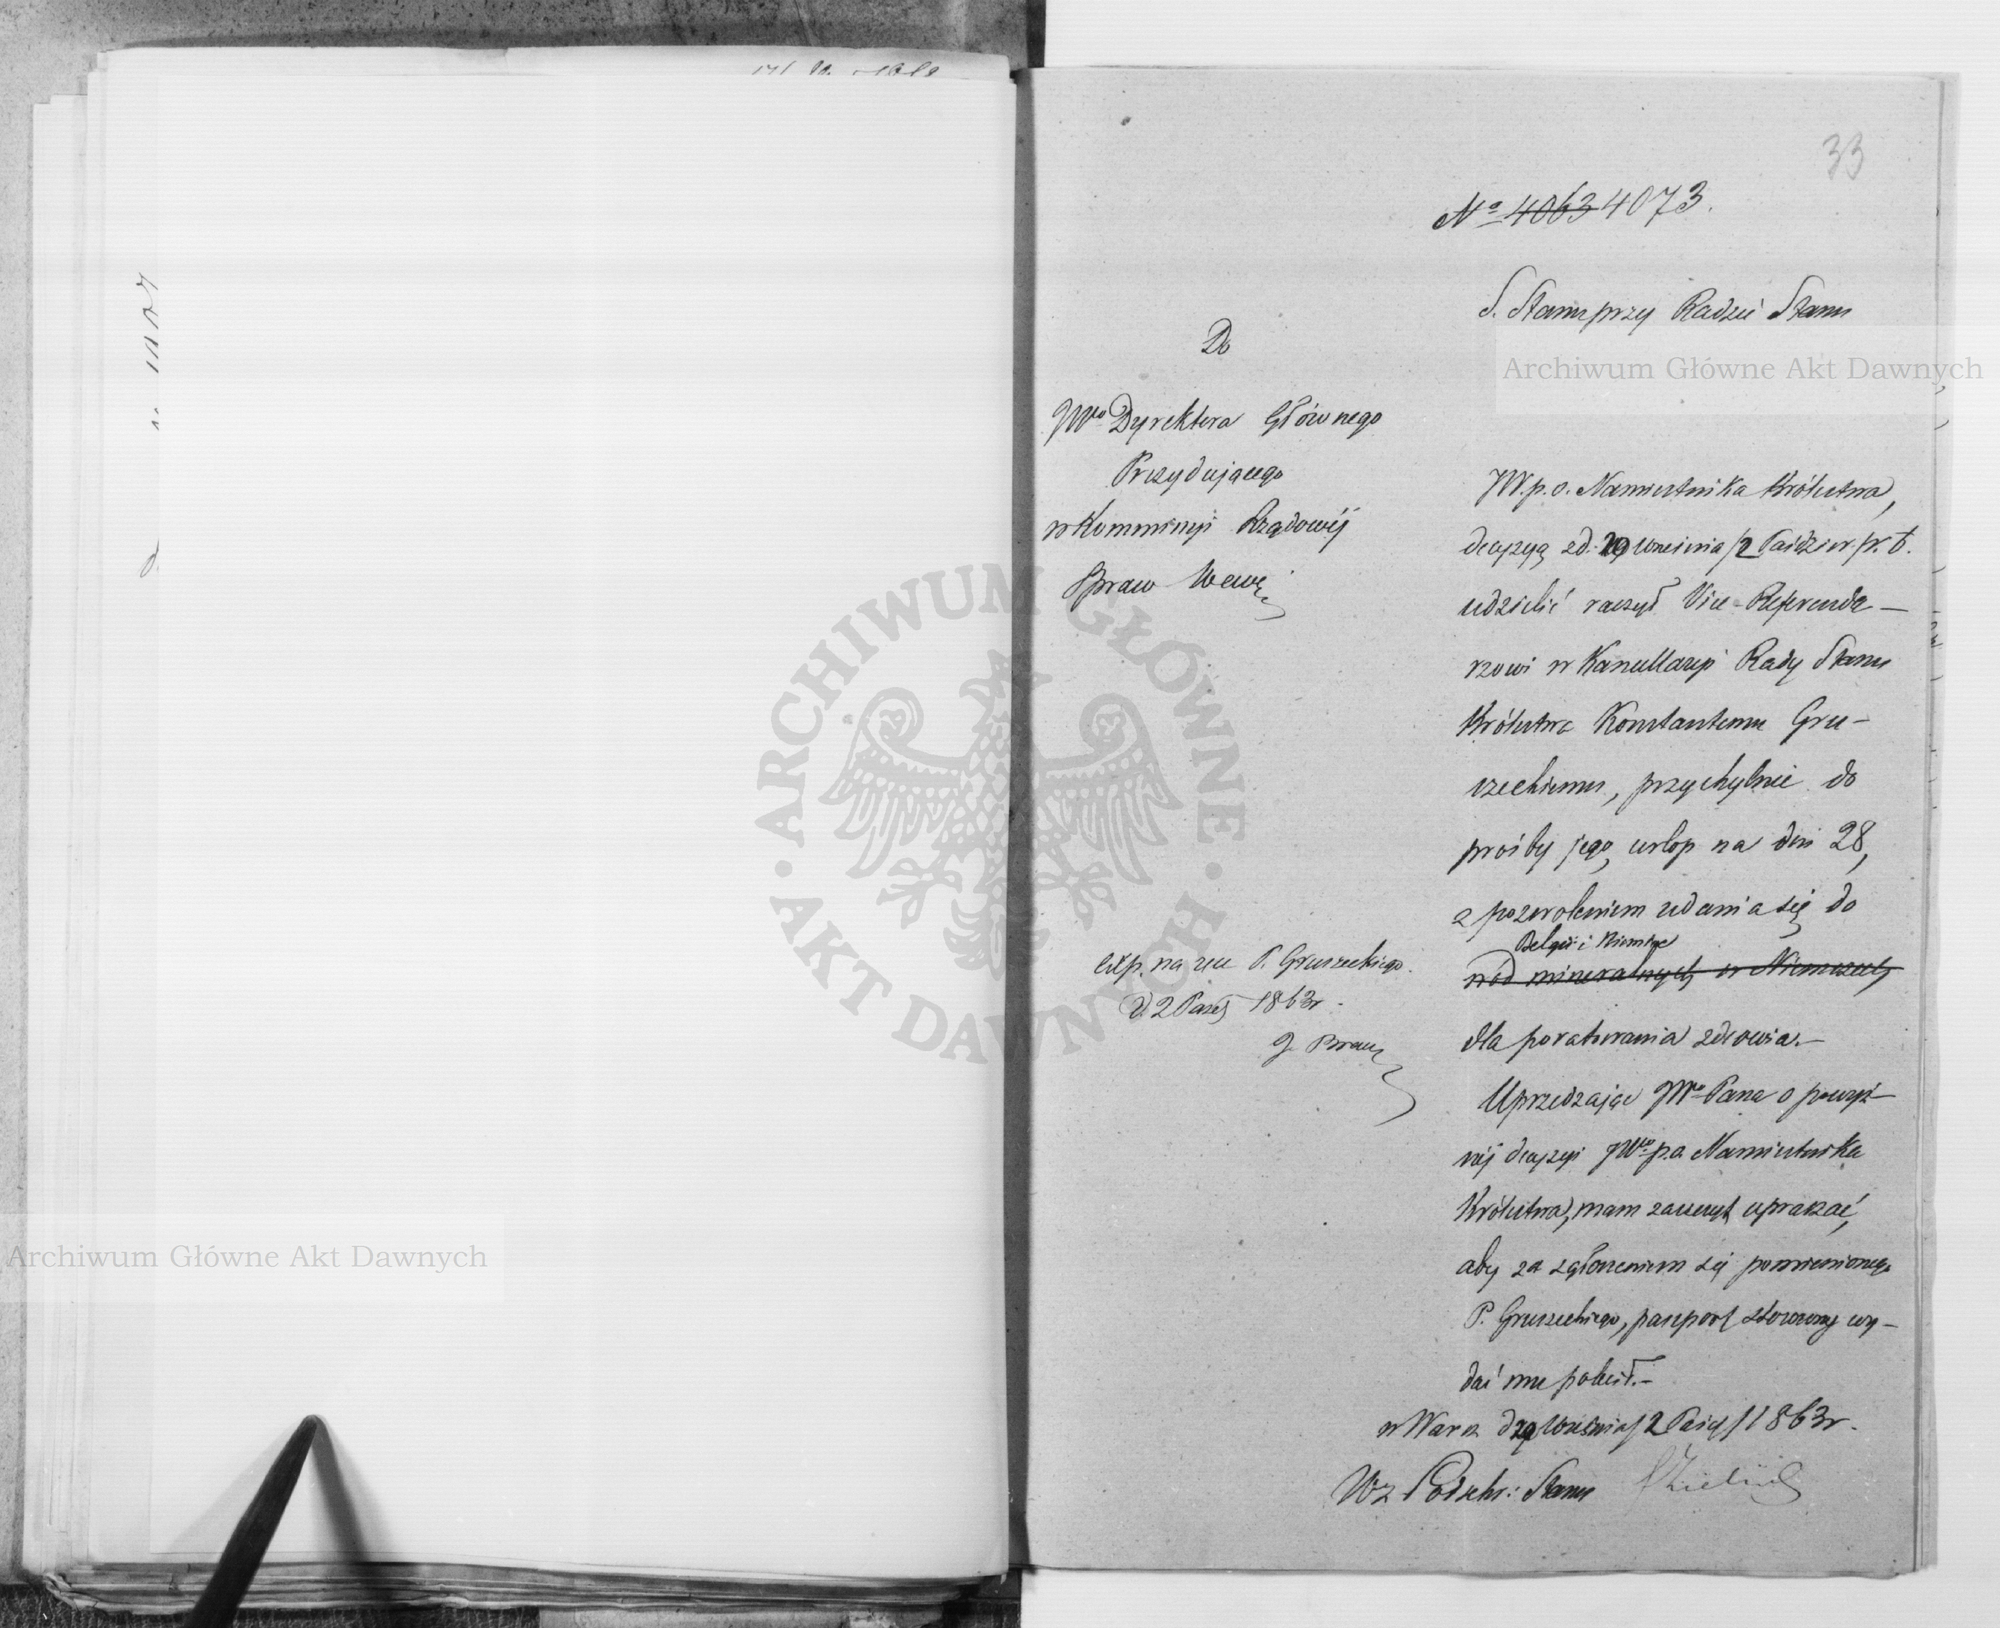 33
Nº 4063 4073.
S. Stanu przy Radzie Stanu
Do
JWo Dyrektora Głównego
Prezydującego
w Kommissyi Rządowéj
Spraw Wewn
JW. p. o. Namiestnika Królestwa,
decyzyą z d. 29 Września / 2 Paździer. r. b.
udzielić raczył Vice-Referenda-
rzowi w Kancellaryi Rady Stanu
Królestwa Konstantemu Gru-
szeckiemu, przychylnie do
prośby jego, urlop na dni 28,
z pozwoleniem udania się do
Belgii i Niemiec
wód mineralnych w Niemczech
dla poratowania zdrowia.-
Uprzedzając JWo Pana o powyż-
széj decyzyi JWo p. o. Namiestnika
Królestwa, mam zaszczyt upraszać,
aby za zgłoszeniem się pomienionego
P. Gruszeckiego, paszport stosowny wy-
dać mu polecił.-
w Warsz d 29 Września / 2 Paźdz / 1863 r.
Wz Podsekr: Stanu
Exp. na ręce P. Gruszeckiego.
d. 2 Paźdz 1863 r.
Archiwum Główne Akt Dawnych
Archiwum Główne Akt Dawnych
ARCHIWUM GŁÓWNE · AKT DAWNYCH ·